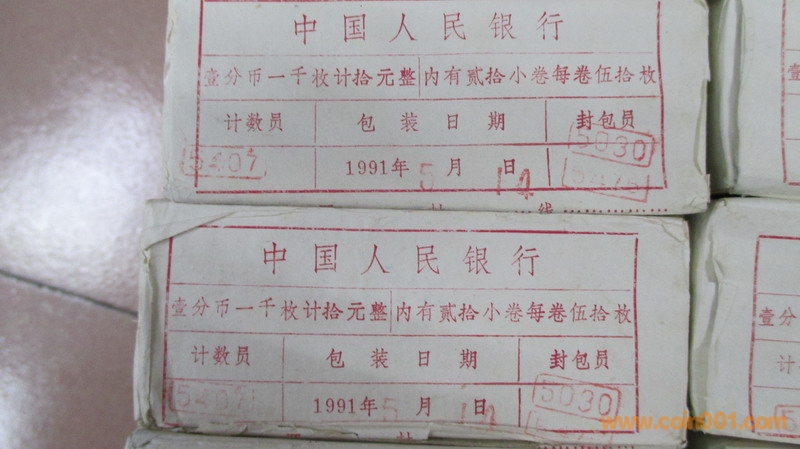 中国人民银行
壹分币一千枚计拾元整 内有贰拾小卷每卷伍拾枚
计数员 包装日期 封包员
5407 1991年5月14日 5030
5475
线
中国人民银行
壹分币一千枚计拾元整 内有贰拾小卷每卷伍拾枚
计数员 包装日期 封包员
5407 1991年5月14日 5030
壹分
计
www.coin001.com